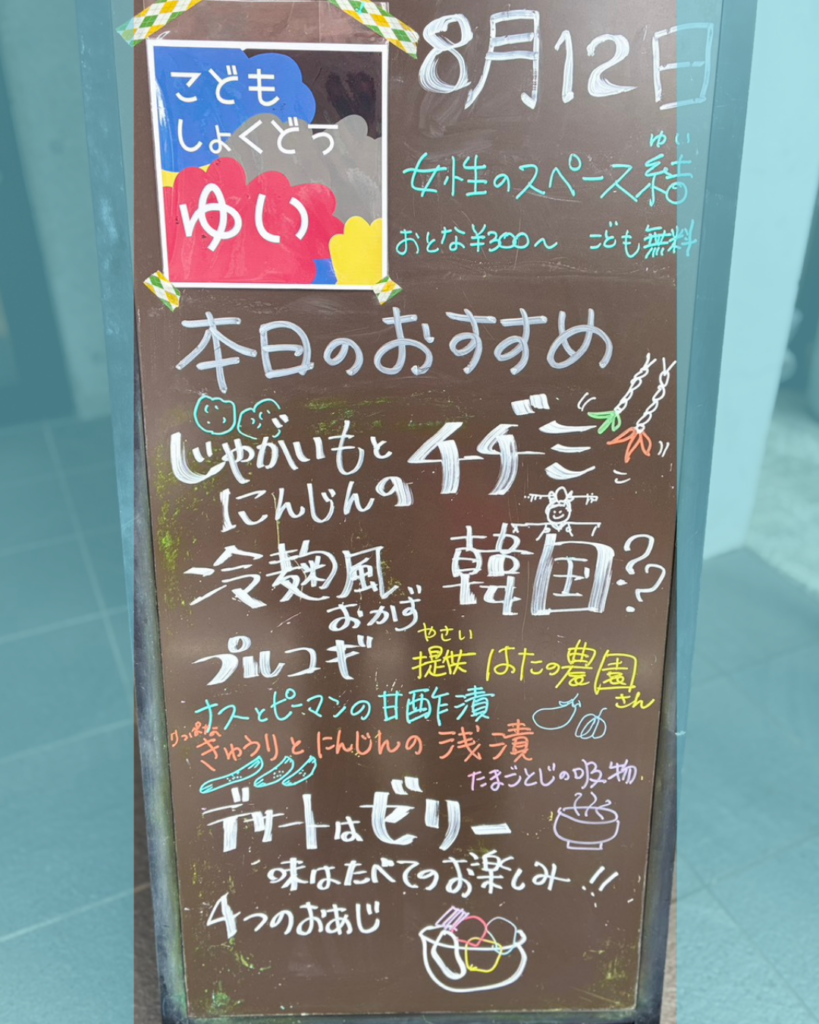 こども
しょくどう
ゆい
8月12日
ゆい
女性のスペース結
おとな¥300〜 こども無料
本日のおすすめ
じゃがいもと
にんじんの
チヂミ
冷麺風
おかず
韓国??
プルコギ
やさい
提供 はたの農園
さん
ナスとピーマンの甘酢漬
きゅうりとにんじんの浅漬
たまごとじの吸物
デザートはゼリー
味はたべてのお楽しみ!!
4つのおあじ